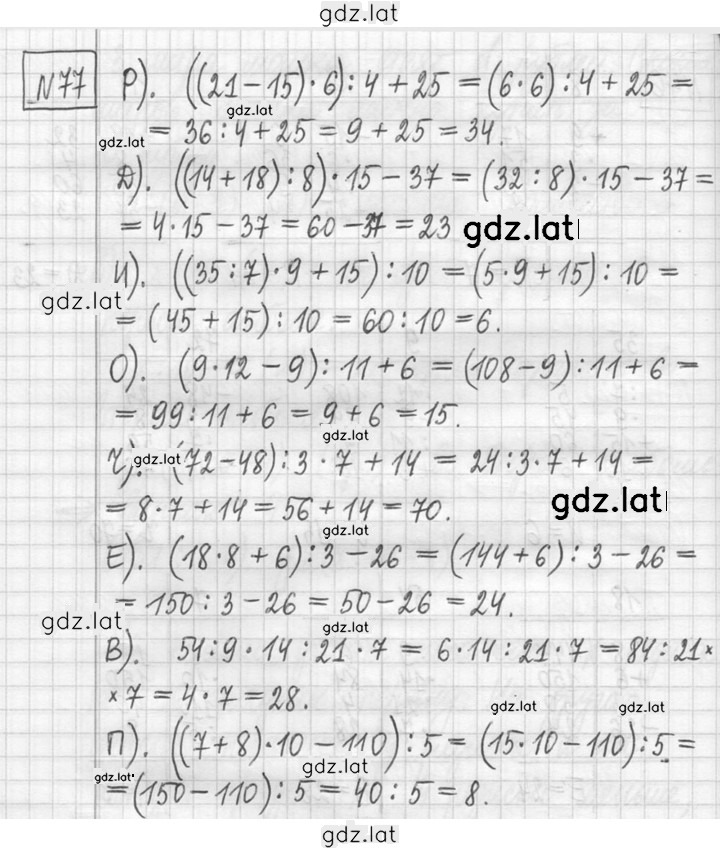 gdz.lat
N77 Р). ((21-15)·6):4+25=(6·6):4+25=
gdz.lat
gdz.lat = 36:4+25=9+25=34.
Д). ((14+18):8)·15-37=(32:8)·15-37=
=4·15-37=60-37=23 gdz.lat
И). ((35:7)·9+15):10=(5·9+15):10=
gdz.lat
=(45+15):10=60:10=6.
О). (9·12-9):11+6=(108-9):11+6=
=99:11+6=9+6=15.
gdz.lat
Ч). gdz.lat (72-48):3·7+14=24:3·7+14=
=8·7+14=56+14=70. gdz.lat
gdz.lat
Е). (18·8+6):3-26=(144+6):3-26=
=150:3-26=50-26=24.
gdz.lat gdz.lat
В). 54:9·14:21·7=6·14:21·7=84:21×
×7=4·7=28.
gdz.lat gdz.lat
П). ((7+8)·10-110):5=(15·10-110):5=
gdz.lat gdz.lat
=(150-110):5=40:5=8.
gdz.lat